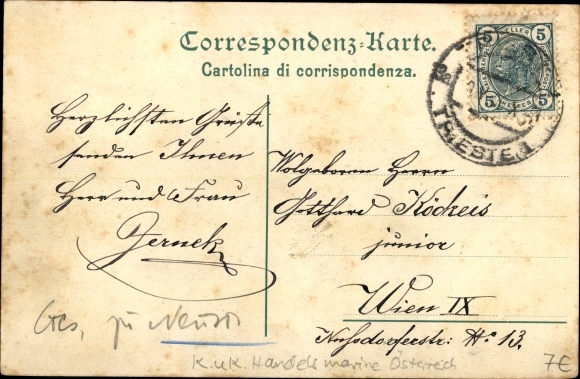 Correspondenz-Karte.
Cartolina di corrispondenza.
5 HELLER 5
5 HELLER 5
TRIESTE 1
Herzlichsten Grüße
senden Ihnen
Herr und Frau
Jernek
Wolgeboren Herrn
Gotthard Köckeis
junior
Wien IX
Nußdorferstr: No 13.
zu
K.u.K. Handelsmarine Österreich
7€